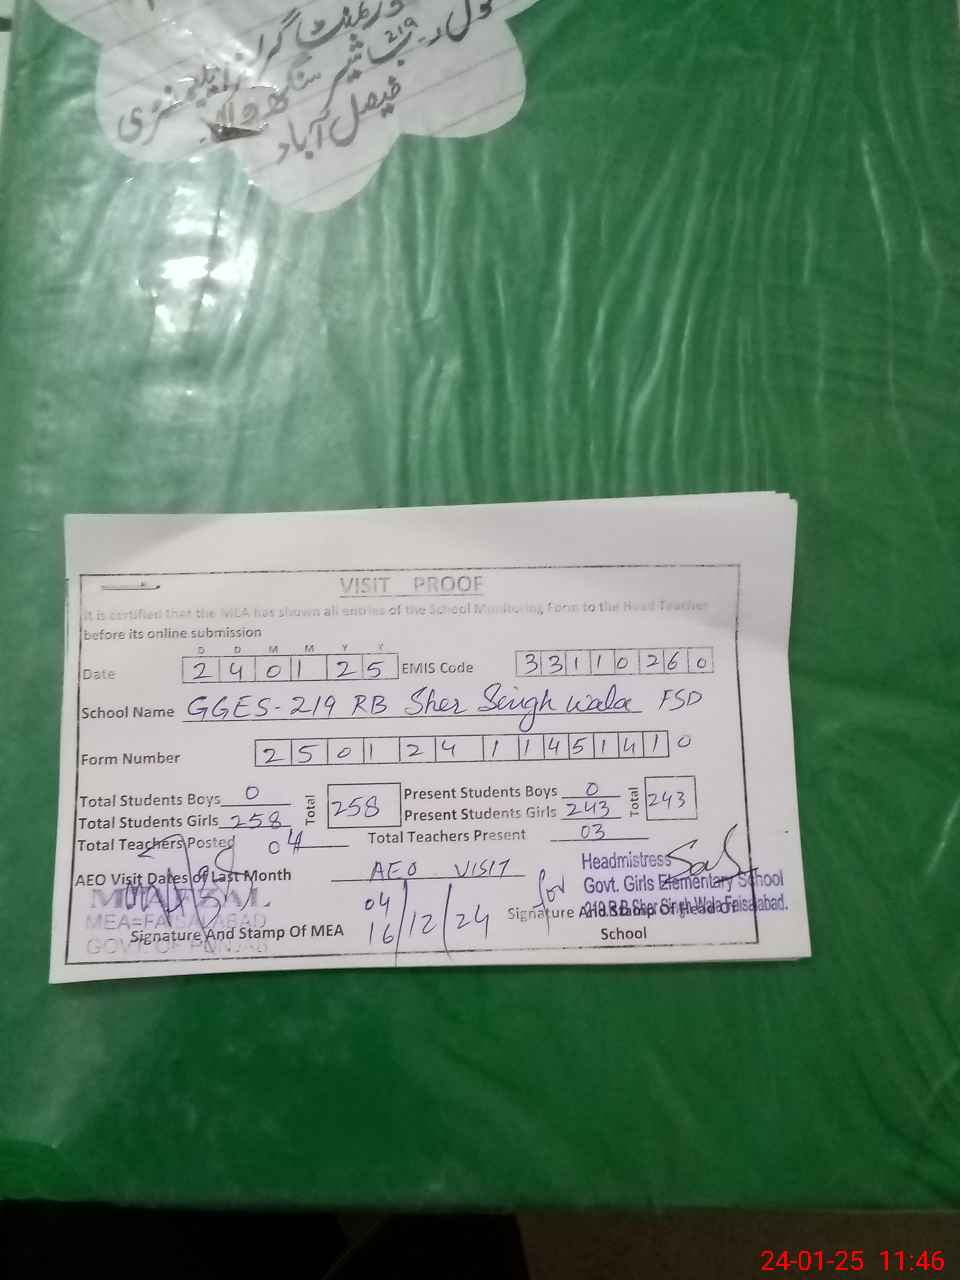 گورنمنٹ گرلز ایلیمنٹری
سکول 219 ر۔ب شیر سنگھ والا
فیصل آباد
VISIT PROOF
It is certified that the MEA has shown all entries of the School Monitoring Form to the Head Teacher
before its online submission
D D M M Y Y
Date 2 4 0 1 2 5 EMIS Code 3 3 1 1 0 2 6 0
School Name GGES-219 RB Sher Singh Wala FSD
Form Number 2 5 0 1 2 4 1 1 4 5 1 4 1 0
Total Students Boys 0 Total 258 Present Students Boys 0 Total 243
Total Students Girls 258 Present Students Girls 243
Total Teachers Posted 04 Total Teachers Present 03
AEO Visit Dates of Last Month AEO VISIT
04
16/12/24
MEA=FAISALABAD
GOVT. OF PUNJAB
Signature And Stamp Of MEA
for
Headmistress
Govt. Girls Elementary School
219 R.B Sher Singh Wala Faisalabad.
Signature And Stamp Of Head Of
School
24-01-25 11:46